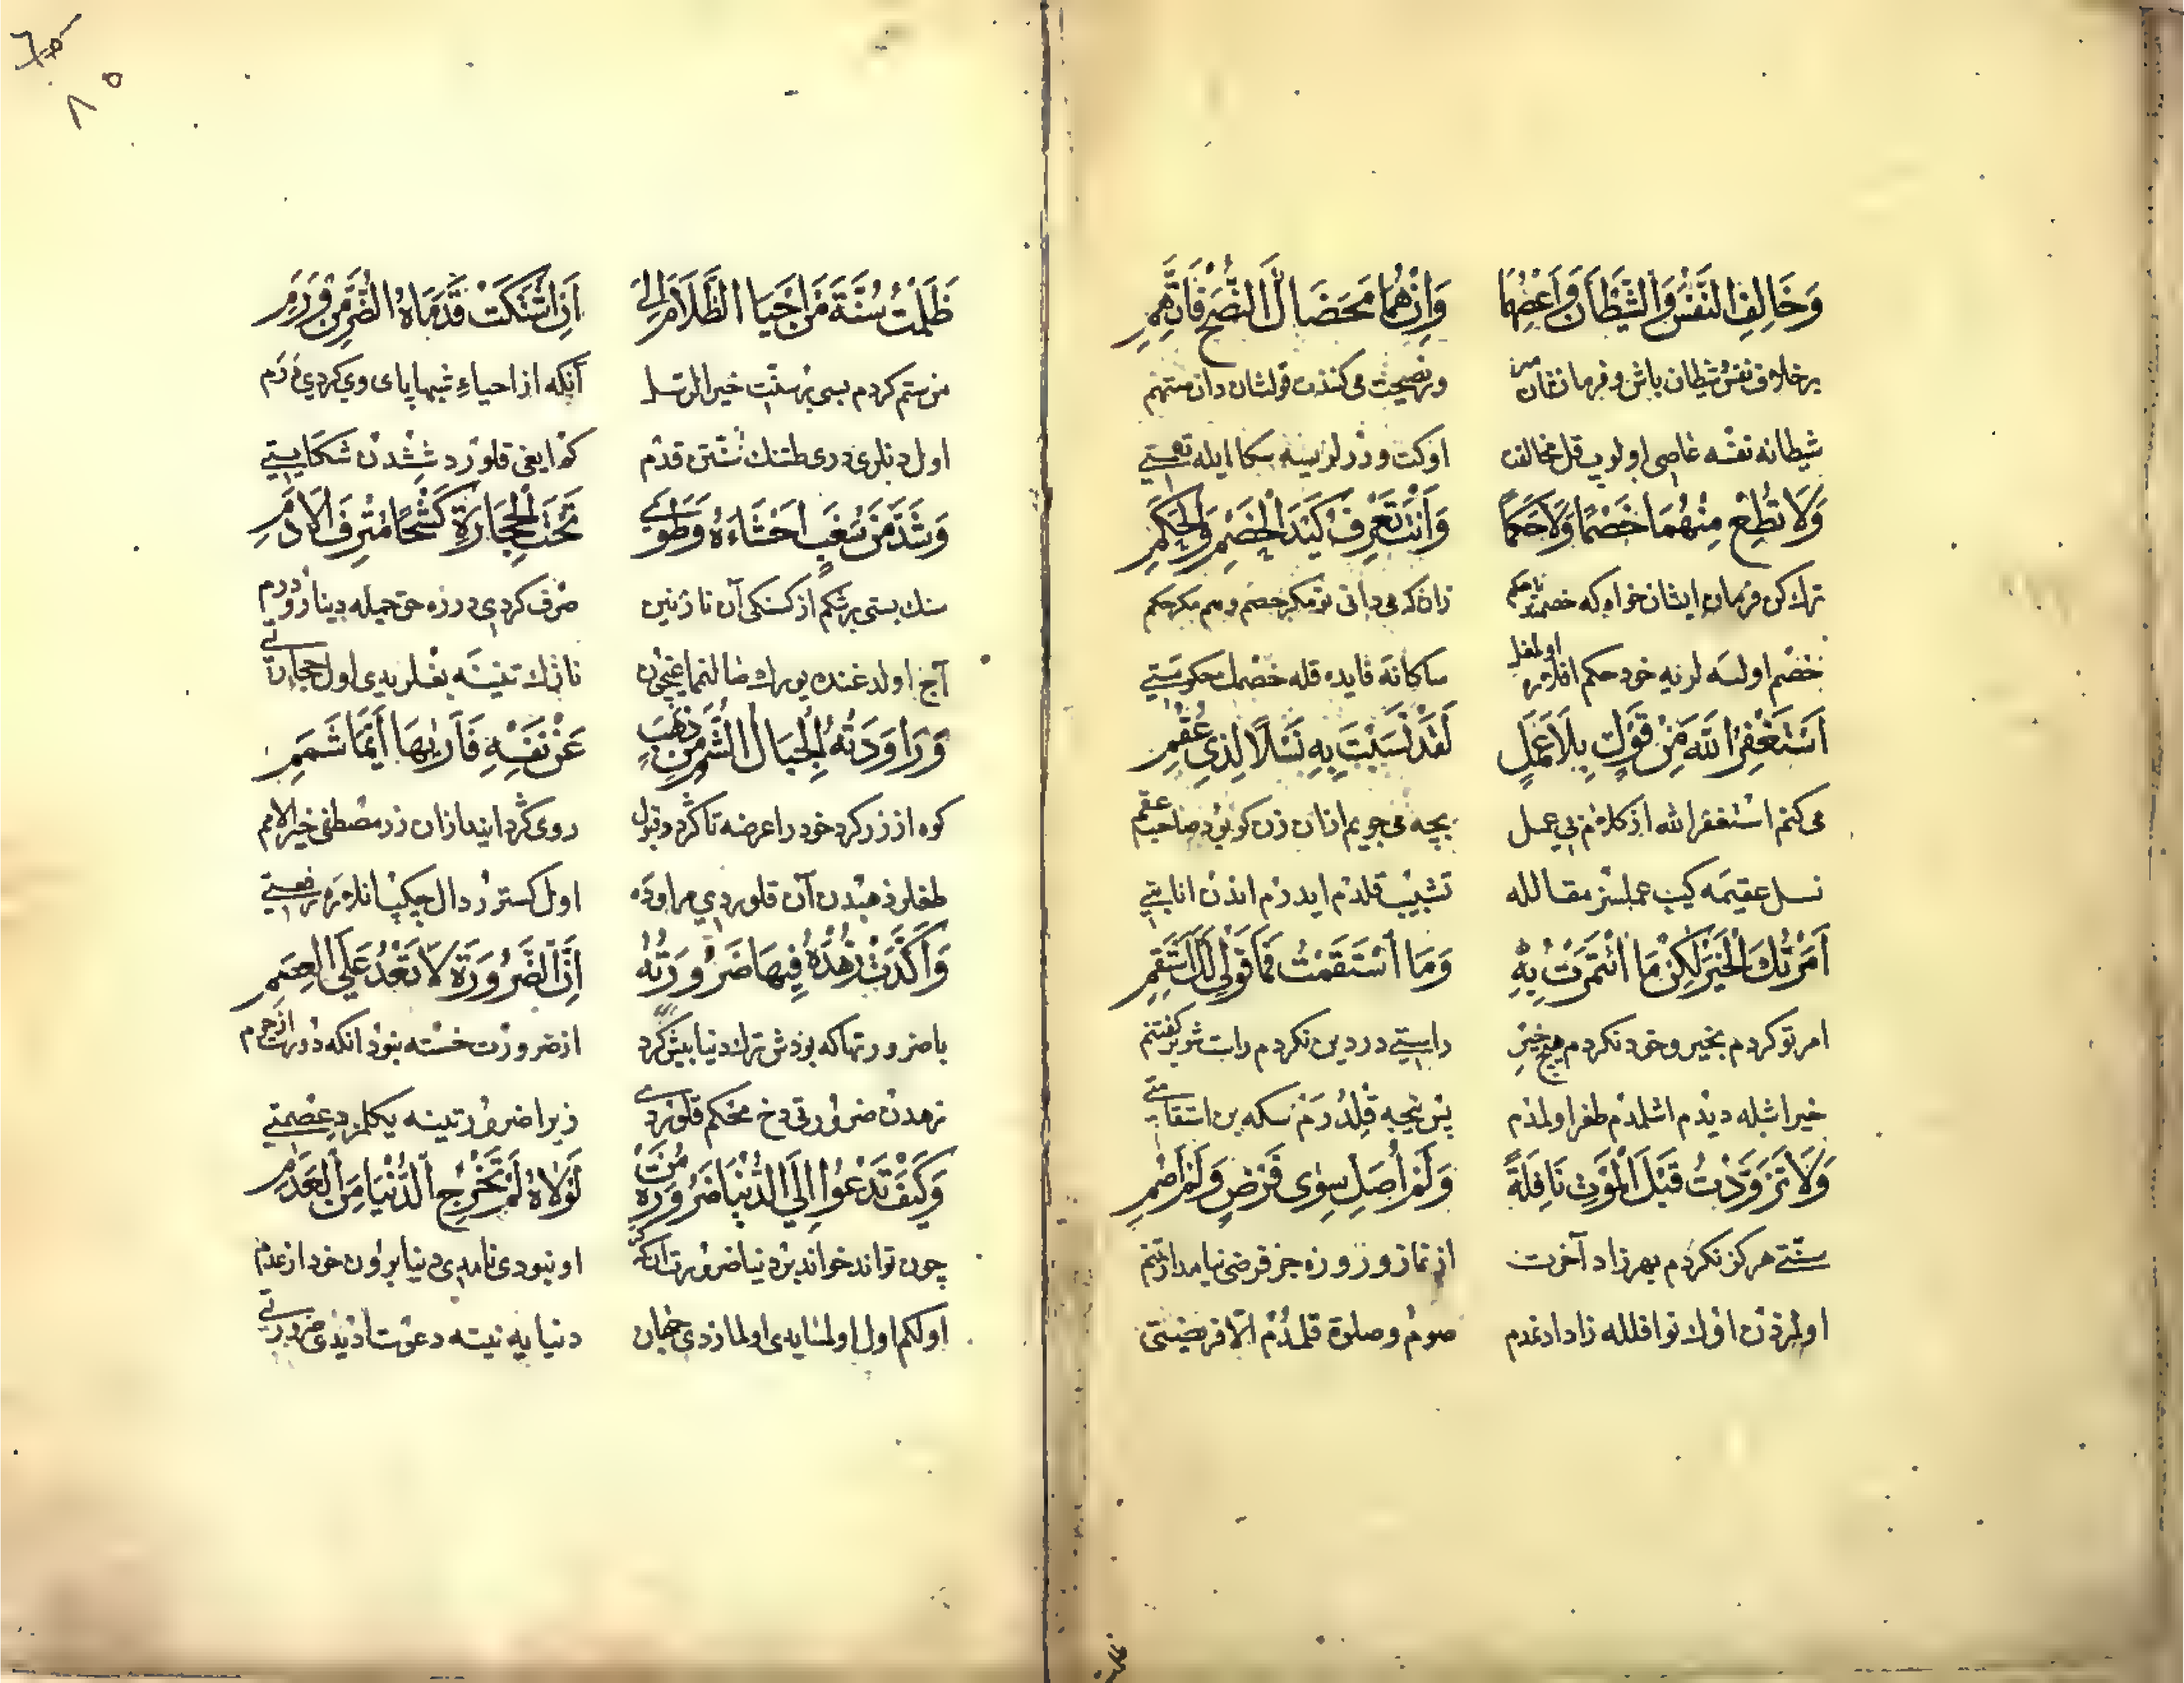 وَخَالِفِ النَّفْسَ وَالشَّيْطَانَ وَاعْصِهِمَا وَاِنْ هُمَا مَحَضَاكَ النُّصْحَ فَاتَّهِمِ
برخلاف نفس شیطان باش و فرمانشان مبر ور نصیحت می کنندت قولشان دان متهم
شیطانه نفسه عاصی اولوب قل مخالفت اوکت ویررلرسه سکا ایله تهمتی
وَلَا تُطِعْ مِنْهُمَا خَصْمًا وَلَا حَكَمًا وَاَنْتَ تَعْرِفُ كَيْدَ الْخَصْمِ وَالْحَكَمِ
ترك کن فرمان ایشان خواه که خصمند یا حکم زانکه می دانی تو مکر خصم و هم مکر حکم
خصم اولسه لر نه خود حکم
اَسْتَغْفِرُ اللّٰهَ مِنْ قَوْلٍ بِلَا عَمَلٍ لَقَدْ نَسَبْتُ بِهِ نَسْلًا لِذِي عُقُمِ
می کنم استغفر الله از کلام بی عمل بچه می جویم ازان زن کو بود صاحب عقم
نسل عقیمه کیب عملسز مقالله تشبیب قلدم ایدرم اندن انابتی
اَمَرْتُكَ الْخَيْرَ لٰكِنْ مَا ائْتَمَرْتُ بِهِ وَمَا اسْتَقَمْتُ فَمَا قَوْلِي لَكَ اسْتَقِمِ
امر تو کردم بخیر و خود نکردم هیچ خیر راستی در دین نکردم راست شو بر گفتنم
خیر اشله دیدم اشلدم طغر اولمدم پس نجیه قلدرم سکه بن استقامتی
وَلَا تَزَوَّدْتُ قَبْلَ الْمَوْتِ نَافِلَةً وَلَمْ اُصَلِّ سِوٰى فَرْضٍ وَلَمْ اَصُمِ
سنتی هرکز نکردم بهر زاد آخرت از نماز و روزه جز فرضی نیامد از تنم
اولمزدن اوك نوافلله زاد ادمدم صوم و صلوة قلمدم الا فریضتی
ظَلَمْتُ سُنَّةَ مَنْ اَحْيَا الظَّلَامَ اِلٰى اَنِ اشْتَكَتْ قَدَمَاهُ الضُّرَّ مِنْ وَرَمِ
من ستم کردم بسی بر سنت خیر الرسل آنکه از احیاء شبها پای وی کردی ورم
اول دنلری دری طتنك سنتن قدم کم ایغی قلوردی ششدن شکایتی
وَشَدَّ مِنْ سَغَبٍ اَحْشَاءَهُ وَطَوٰى تَحْتَ الْحِجَارَةِ كَشْحًا مُتْرَفَ الْاَدَمِ
سنك بستی بر شکم از کسنکی آن نازنین صرف کردی در ره حق جمله دینار و درم
آج اولدغنده یورك
وَرَاوَدَتْهُ الْجِبَالُ الشُّمُّ مِنْ ذَهَبٍ عَنْ نَفْسِهِ فَاَرَاهَا اَيَّمَا شَمَمِ
کوه از زر کرد خود را عرضه تا کرد و قبول روی کردانید ازان زر مصطفی خیر الامم
طغلر ذهبدن آن قلوردی مراوده اول کستردال
وَاَكَّدَتْ زُهْدَهُ فِيهَا ضَرُورَتُهُ اِنَّ الضَّرُورَةَ لَا تَعْدُ عَلَى الْعِصَمِ
با ضرورتها که بودش ترك دنیا بیش کرد از ضرورت خسته نبود انکه دورست از حرم
زهدن ضرورتی دخ محکم قلوردی زیرا ضرورتینه یکلمز عصمتی
وَكَيْفَ تَدْعُوا اِلَى الدُّنْيَا ضَرُورَةُ مَنْ لَوْلَاهُ لَمْ تَخْرُجِ الدُّنْيَا مِنَ الْعَدَمِ
چون تواند خواند بر دنیا ضرورت آنکه کر او نبودی نامدی دنیا برون خود از عدم
اولکم اول اولمسایدی اولمازدی جهان دنیایه نیته دعوت ادیدی ضرورتی
ظلمت
٨٥